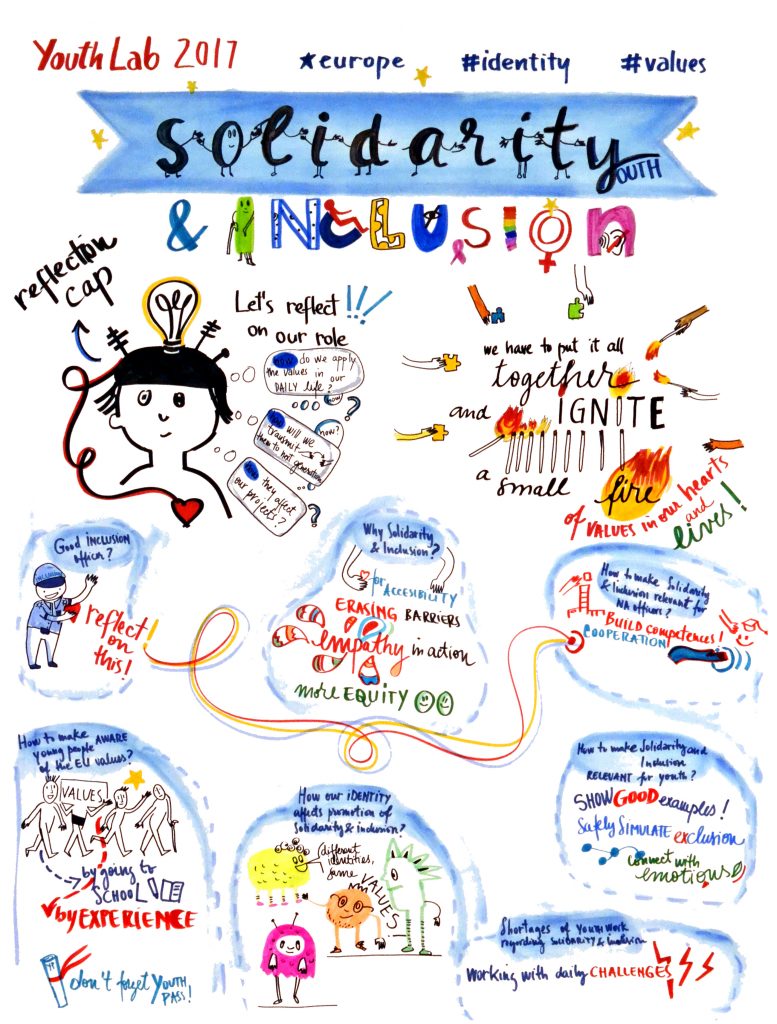 Youth Lab 2017
★europe #identity #values
Solidarity
YOUTH
& INCLUSION
reflection
cap
Let's reflect !!!
on our role
HOW do we apply
the values in our
DAILY life?
HOW?
HOW will we
transmit
them to next generations
HOW?
HOW they affect
our projects?
we have to put it all
together
and IGNITE
a small fire
of VALUES in our hearts
and
lives!
Good INCLUSION
officer?
reflect
on
this!
Why Solidarity
& Inclusion?
for ACCESIBILITY
ERASING BARRIERS
empathy in action
more EQUITY
How to make Solidarity
& Inclusion relevant for
NA officers?
BUILD competences!
COOPERATION
How to make AWARE
young people
of the EU values?
VALUES
by going to
SCHOOL
by EXPERIENCE
don't forget YOUTH
PASS!
How our IDENTITY
affects promotion of
Solidarity & inclusion?
different
identities,
same
VALUES!
How to make Solidarity and
Inclusion
RELEVANT for youth?
SHOW GOOD examples!
Safely SIMULATE exclusion
connect with
emotions
Shortages of youthwork
regarding SOLIDARITY & Inclusion
Working with daily CHALLENGES